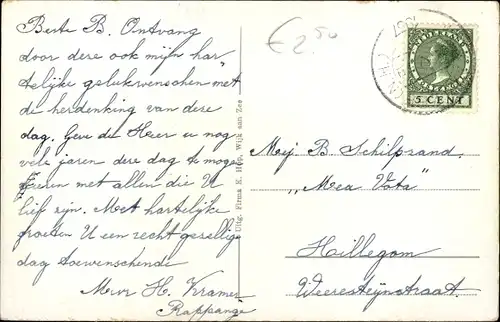 Beste B. Ontvang
door dere ook mijn har-
telijke gelukwenschen met
de herdenking van dere
dag. Geve de Heer u nog
vele jaren dere dag te moge
vieren met allen die U
lief zijn. Met hartelijke
groeten U een recht gezellige
dag toewenschende
Mevr H. Kramer
Rappange
Uitg. Firma K. Hop, Wijk aan Zee
€ 2.50
NEDERLAND
5 CENT
Mej B. Schilpzand.
„Mea Vota"
Hillegom
Weeresteijnstraat.